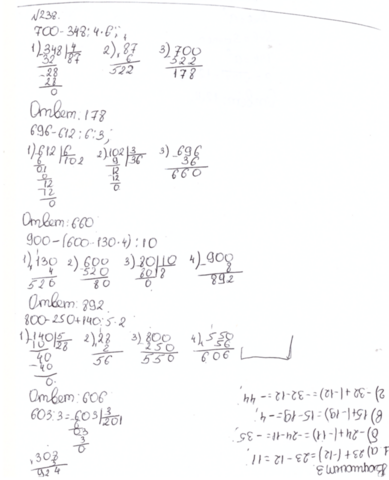 №238.
700-348:4·6;
1) 348 | 4   2) 87   3) 700
32 | 87   6   522
28   522   178
28
0
Ответ: 178
696-612:6:3;
1) 612 | 6   2) 102 | 3   3) 696
6 | 102   9 | 36   36
01   12   660
0   12
12   0
12
0
Ответ: 660
900-(600-130·4):10
1) 130   2) 600   3) 80 | 10   4) 900
4   520   80 | 8   8
520   80   0   892
Ответ: 892
800-250+140:5·2
1) 140 | 5   2) 28   3) 800   4) 550
10 | 28   2   250   56
40   56   550   606
40
0
Ответ: 606
603:3= 603 | 3
6 | 201
03
3
0
308
924
Вариант 3.
1 а) 23+(-12)=23-12=11,
б) -24+(-11)=-24-11=-35,
в) 15+(-19)=15-19=-4,
г) -32+(-12)=-32-12=-44,